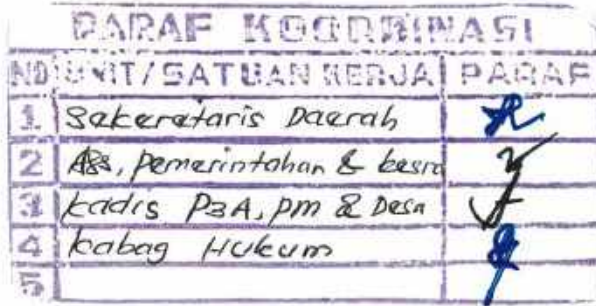 PARAF KOORDINASI
NO UNIT/SATUAN KERJA PARAF
1 Sakeretaris Daerah
2 Ass, pemerintahan & kesra
3 kadis P3A, pm & Desa
4 kabag Hukum
5